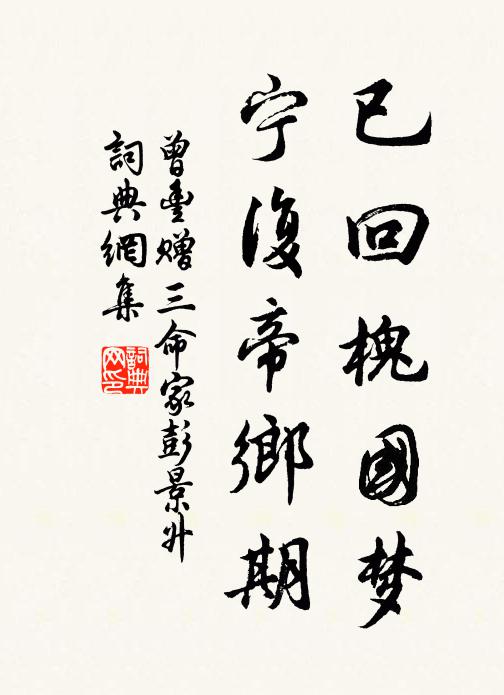 已回槐國梦
宁復帝鄉期
曾豊赠三命家彭景升
詞典網集
詞典网印